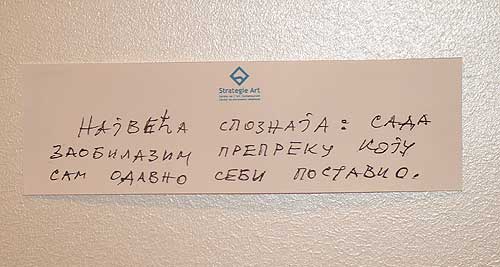 Strategie Art
НАЈВЕЋА СПОЗНАЈА: САДА
ЗАОБИЛАЗИМ ПРЕПРЕКУ КОЈУ
САМ ОДАВНО СЕБИ ПОСТАВИО.